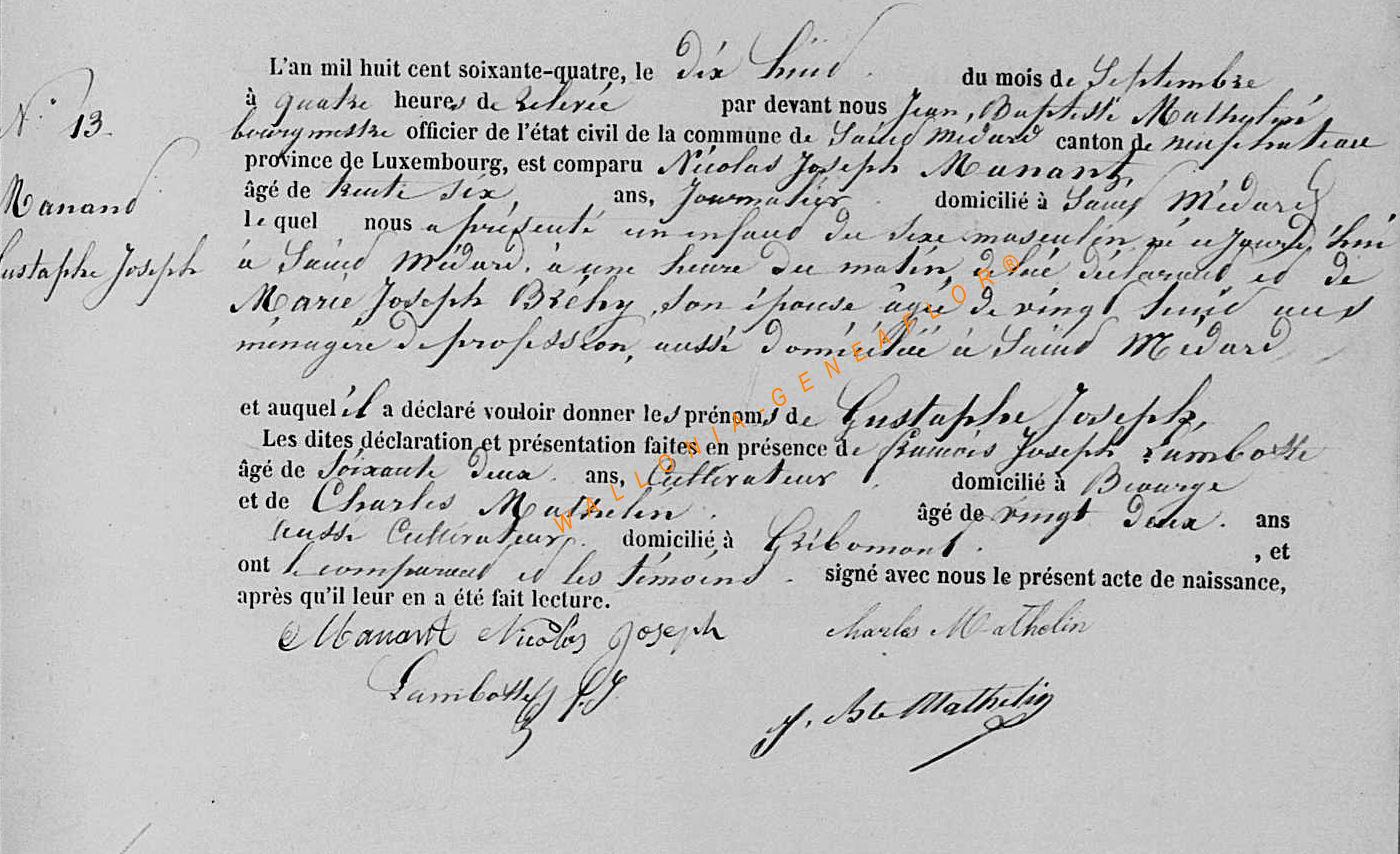 L'an mil huit cent soixante-quatre, le dix huit du mois de Septembre
N° 13. à quatre heures de relevée par devant nous Jean, Baptiste Mathelin
bourgmestre officier de l'état civil de la commune de Saint Médard canton de neufchateau
province de Luxembourg, est comparu Nicolas Joseph Manant,
Manand âgé de trente six, ans, Journalier domicilié à Saint Médard
lequel nous a présenté un enfant du sexe masculin, né ce jourd'hui
Gustaphe Joseph à Saint Médard, à une heure du matin, de lui déclarant et de
Marie Joseph Bréhy, son épouse âgée de vingt huit ans
ménagère de profession, aussi domiciliée à Saint Médard
et auquel il a déclaré vouloir donner les prénoms de Gustaphe Joseph,
Les dites déclaration et présentation faites en présence de François Joseph Lambotte
âgé de soixante deux ans, Cultivateur domicilié à
et de Charles Mathelin. âgé de vingt deux. ans
aussi Cultivateur domicilié à Gribomont. , et
ont le comparant et les témoins. signé avec nous le présent acte de naissance,
après qu'il leur en a été fait lecture.
Manant Nicolas Joseph Charles Mathelin
Lambotte f. J.
J. Bte Mathelin
WALLONIA-GENEAFLOR®